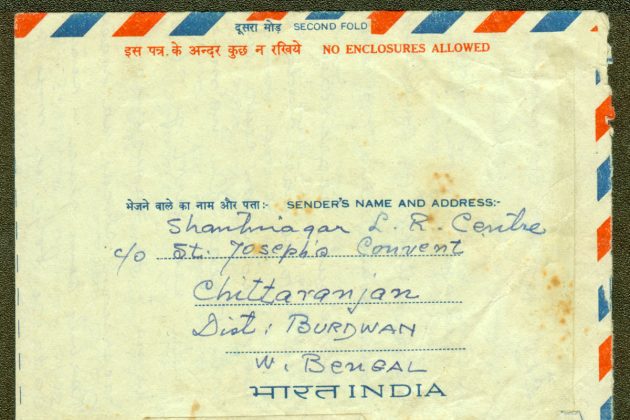 दूसरा मोड़ SECOND FOLD
इस पत्र के अन्दर कुछ न रखिये NO ENCLOSURES ALLOWED
भेजने वाले का नाम और पता:- SENDER'S NAME AND ADDRESS:-
Shantinagar L. R. Centre
c/o St. Joseph's Convent
Chittaranjan
Dist: BURDWAN
W. BENGAL
भारत INDIA